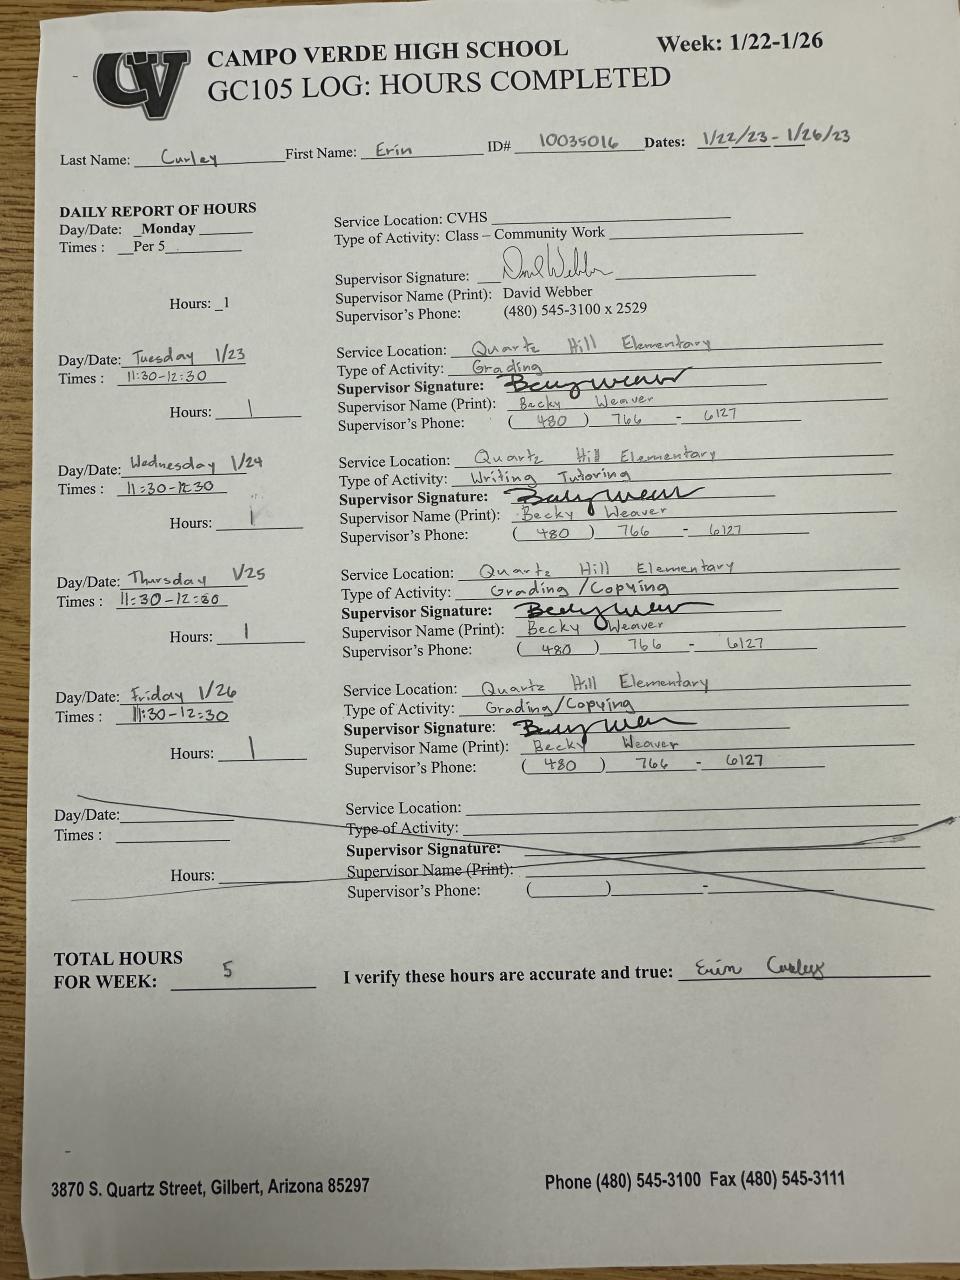 CV
CAMPO VERDE HIGH SCHOOL
Week: 1/22-1/26
GC105 LOG: HOURS COMPLETED
Last Name: Curley First Name: Erin ID# 10035016 Dates: 1/22/23 - 1/26/23
DAILY REPORT OF HOURS
Day/Date: Monday
Times : Per 5
Hours: 1
Service Location: CVHS
Type of Activity: Class – Community Work
Supervisor Signature: David Webber
Supervisor Name (Print): David Webber
Supervisor's Phone: (480) 545-3100 x 2529
Day/Date: Tuesday 1/23
Times : 11:30-12:30
Hours: 1
Service Location: Quartz Hill Elementary
Type of Activity: Grading
Supervisor Signature: Becky Weaver
Supervisor Name (Print): Becky Weaver
Supervisor's Phone: (480) 766 - 6127
Day/Date: Wednesday 1/24
Times : 11:30-12:30
Hours: 1
Service Location: Quartz Hill Elementary
Type of Activity: Writing Tutoring
Supervisor Signature: Becky Weaver
Supervisor Name (Print): Becky Weaver
Supervisor's Phone: (480) 766 - 6127
Day/Date: Thursday 1/25
Times : 11:30-12:30
Hours: 1
Service Location: Quartz Hill Elementary
Type of Activity: Grading/Copying
Supervisor Signature: Becky Weaver
Supervisor Name (Print): Becky Weaver
Supervisor's Phone: (480) 766 - 6127
Day/Date: Friday 1/26
Times : 11:30-12:30
Hours: 1
Service Location: Quartz Hill Elementary
Type of Activity: Grading/Copying
Supervisor Signature: Becky Weaver
Supervisor Name (Print): Becky Weaver
Supervisor's Phone: (480) 766 - 6127
Day/Date:
Times :
Hours:
Service Location:
Type of Activity:
Supervisor Signature:
Supervisor Name (Print):
Supervisor's Phone: ( ) -
TOTAL HOURS
FOR WEEK: 5
I verify these hours are accurate and true: Erin Curley
3870 S. Quartz Street, Gilbert, Arizona 85297
Phone (480) 545-3100 Fax (480) 545-3111